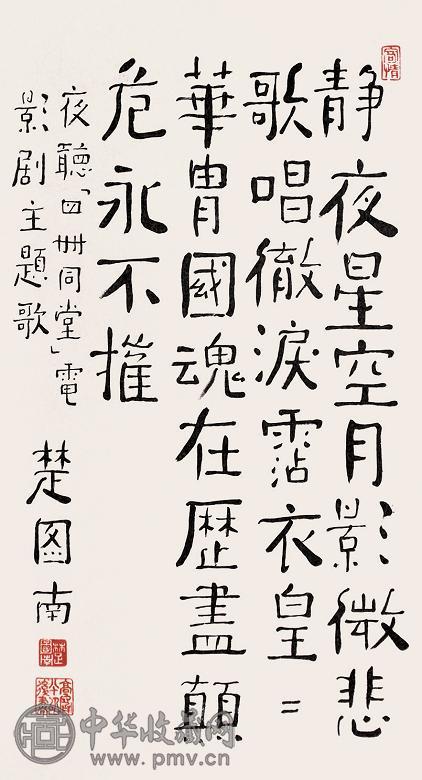 静夜星空月影微悲
歌唱徹淚霑衣皇〻
華胄國魂在歷盡顛
危永不摧
夜聽「四世同堂」電
影剧主題歌
楚圖南
中华收藏网
www.pmv.cn